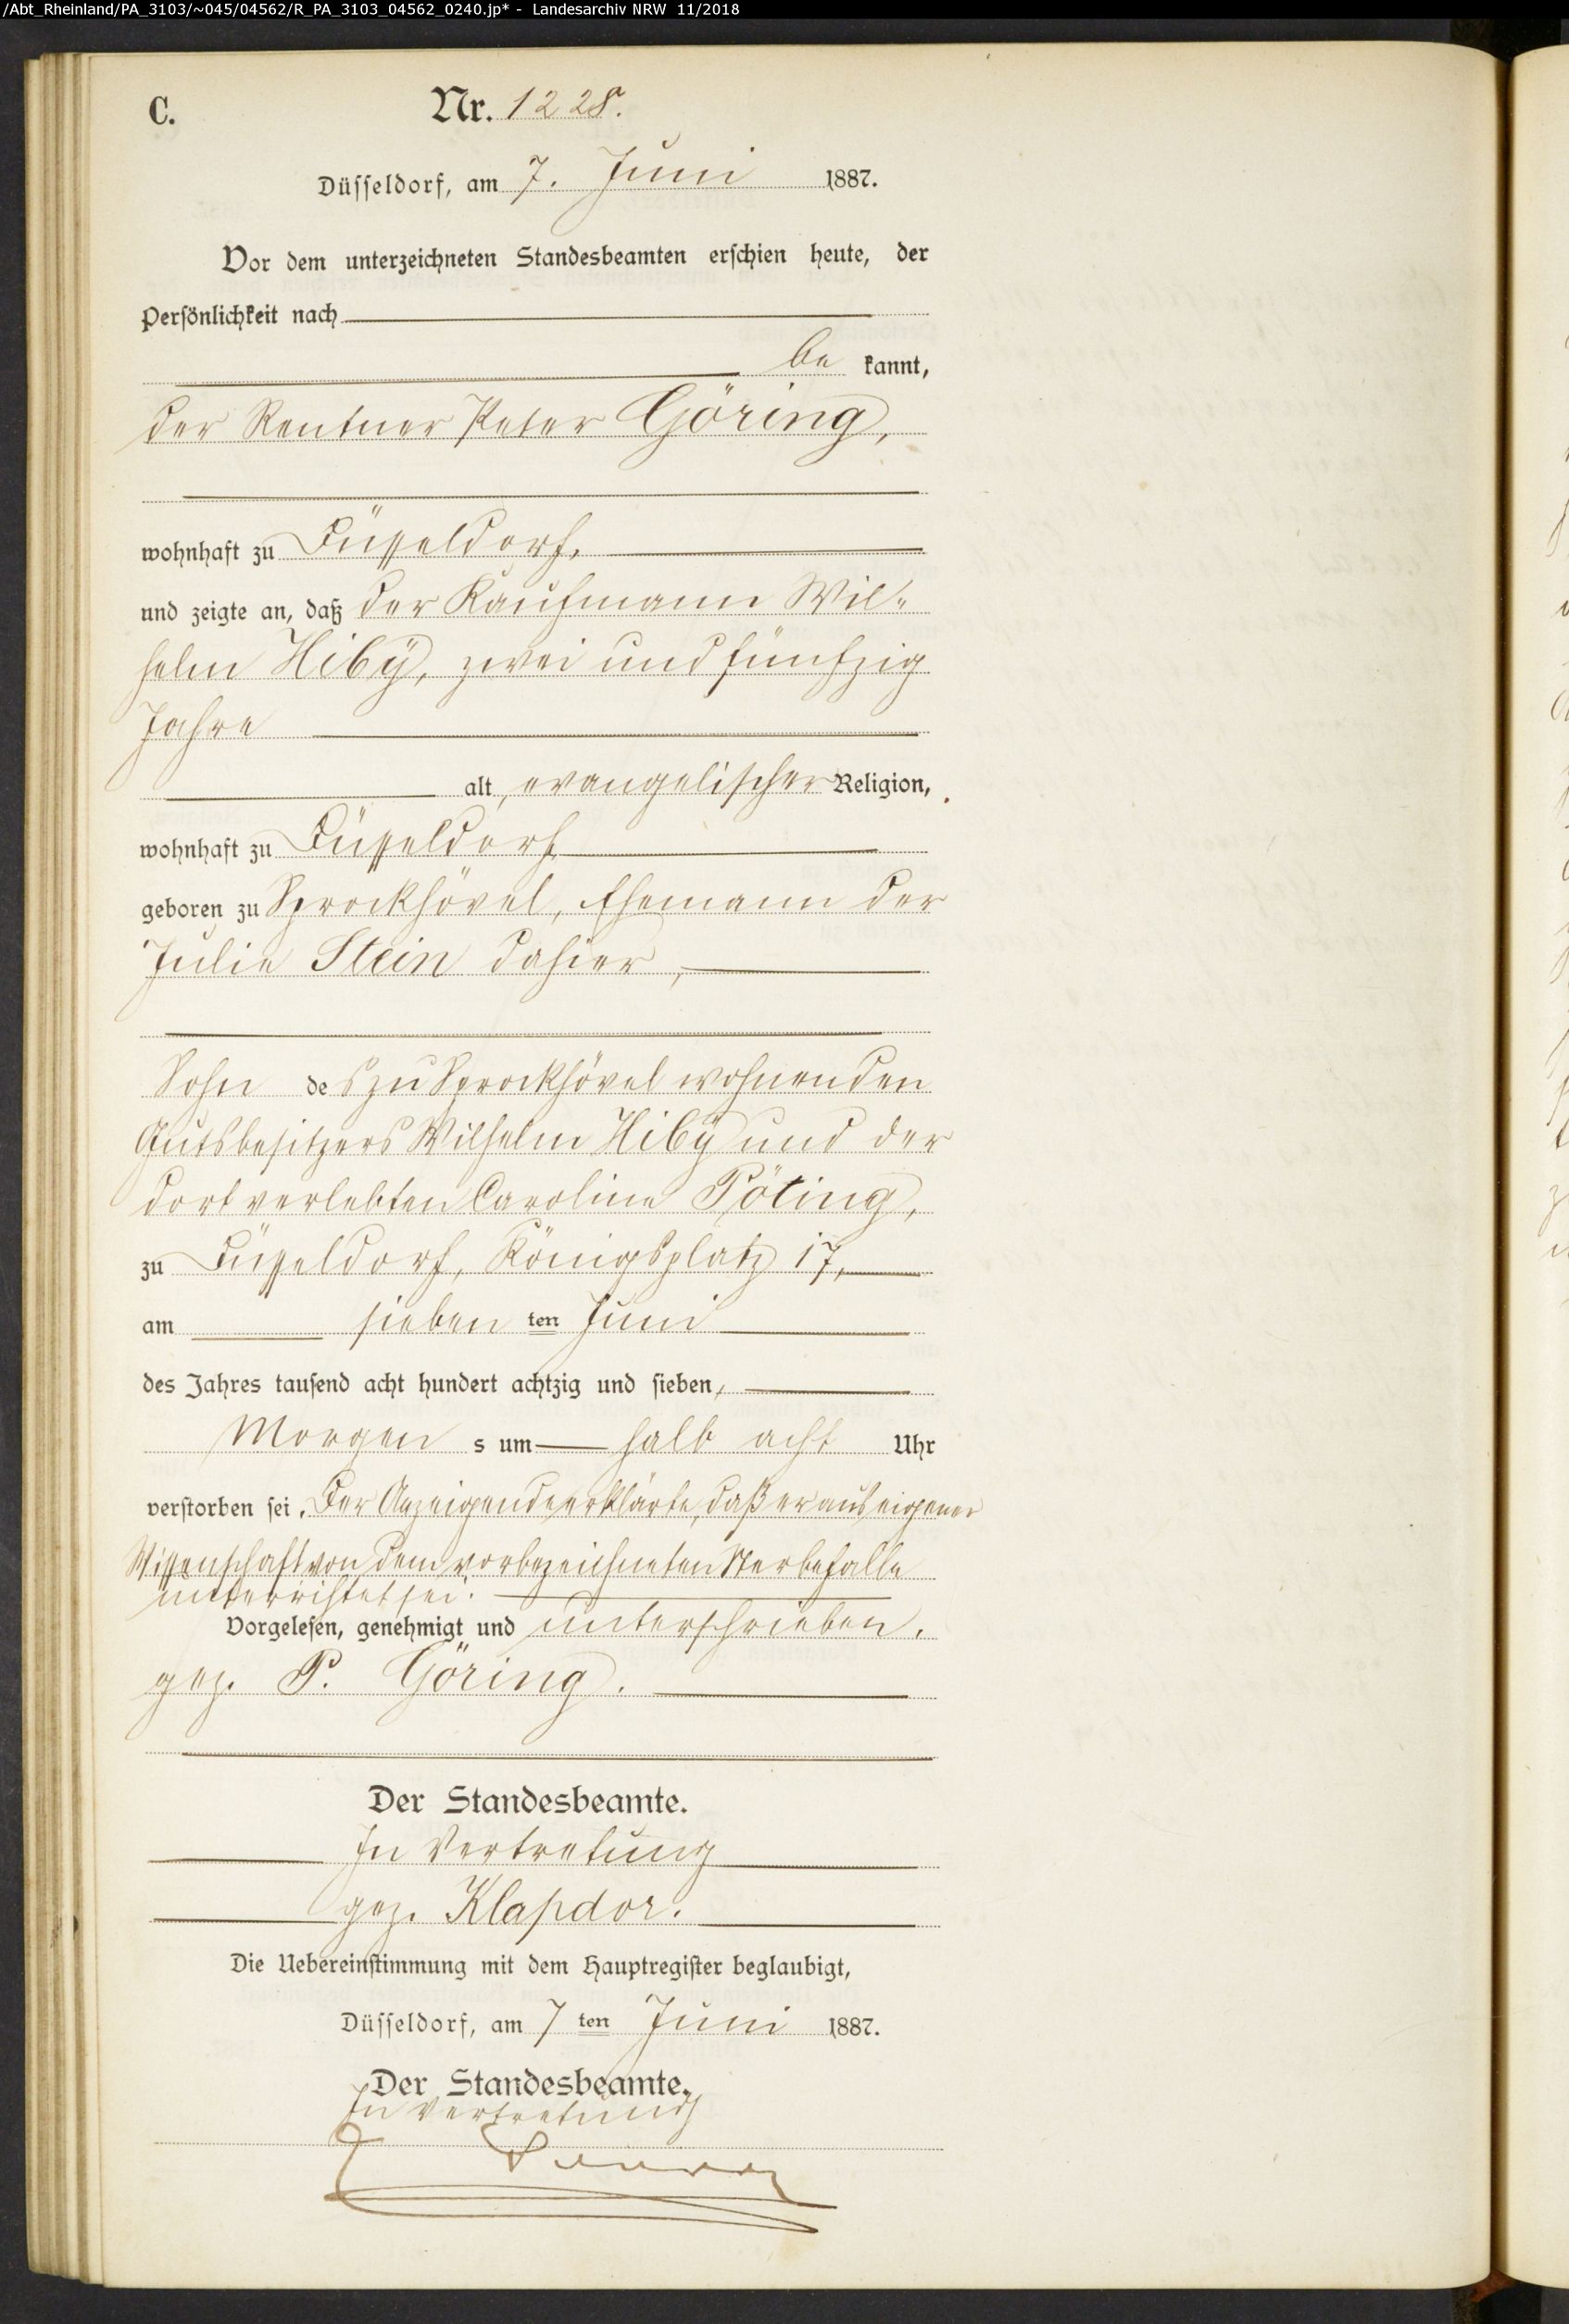 /Abt_Rheinland/PA_3103/~045/04562/R_PA_3103_04562_0240.jp* - Landesarchiv NRW 11/2018
C. Nr. 1228.
Düsseldorf, am 7. Juni 1887.
Vor dem unterzeichneten Standesbeamten erschien heute, der
Persönlichkeit nach
be kannt,
der Rentner Peter Göring,
wohnhaft zu Düsseldorf,
und zeigte an, daß der Kaufmann Wil-
helm Hiby, zwei und fünfzig
Jahre
alt, evangelischer Religion,
wohnhaft zu Düsseldorf
geboren zu Sprockhövel, Ehemann der
Julie Stein dahier,
Sohn des zu Sprockhövel wohnenden
Gutsbesitzers Wilhelm Hiby und der
dort verlebten Caroline Pöting,
zu Düsseldorf, Königsplatz 17,
am sieben ten Juni
des Jahres tausend acht hundert achtzig und sieben,
Morgen s um halb acht Uhr
verstorben sei. Der Anzeigende erklärte, daß er aus eigener
Wissenschaft von dem vorbezeichneten Sterbefalle
unterrichtet sei.
Vorgelesen, genehmigt und unterschrieben.
gez. P. Göring.
Der Standesbeamte.
In Vertretung
gez. Klapdor.
Die Uebereinstimmung mit dem Hauptregister beglaubigt,
Düsseldorf, am 7 ten Juni 1887.
Der Standesbeamte.
In Vertretung